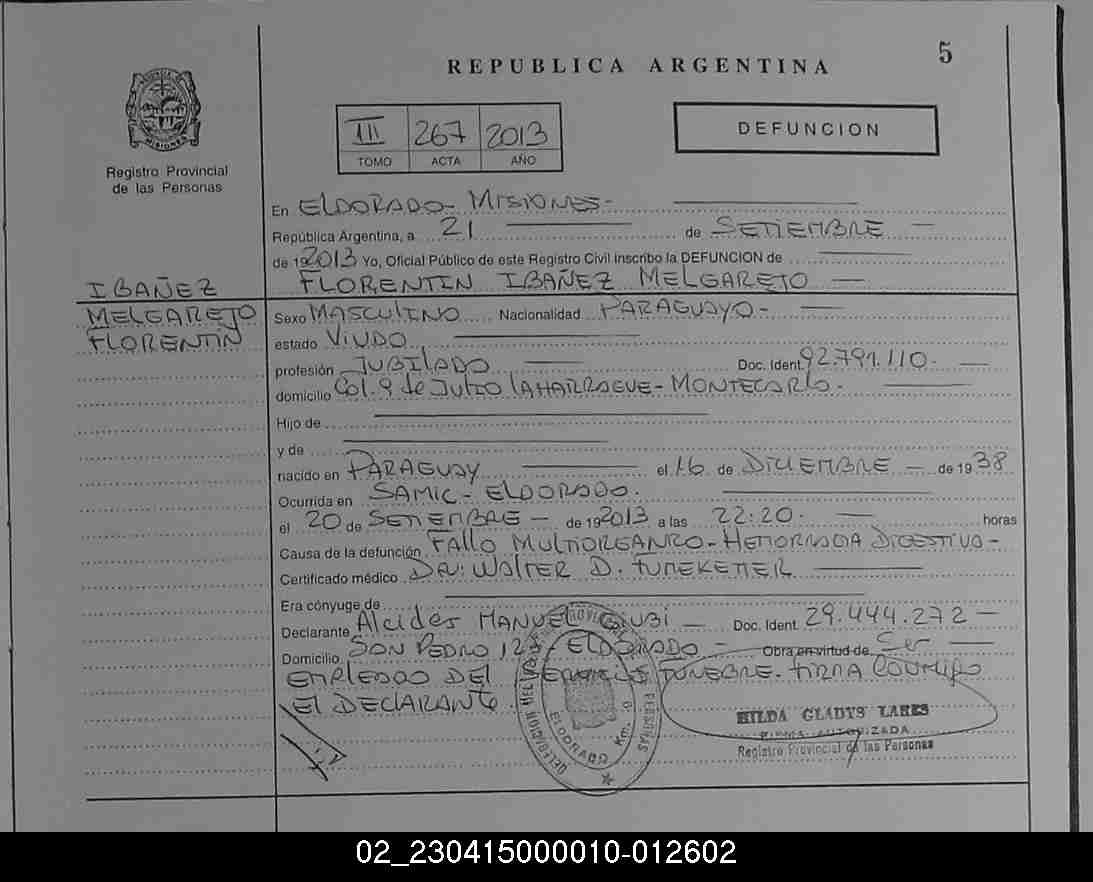 REPUBLICA ARGENTINA
5
III 267 2013
TOMO ACTA AÑO
DEFUNCION
MISIONES
Registro Provincial
de las Personas
IBAÑEZ
MELGAREJO
FLORENTIN
En ELDORADO - MISIONES -
República Argentina, a 21 de SETIEMBRE
de 192013 Yo, Oficial Público de este Registro Civil inscribo la DEFUNCION de
FLORENTIN IBAÑEZ MELGAREJO
Sexo MASCULINO Nacionalidad PARAGUAYO -
estado VIUDO
profesión JUBILADO Doc. Ident. 92.791.110.
domicilio Col. 9 de JULIO LAHARRAGUE - MONTECARLO.
Hijo de
y de
nacido en PARAGUAY el 16 de DICIEMBRE - de 1938
Ocurrida en SAMIC - ELDORADO.
el 20 de SETIEMBRE - de 192013 a las 22:20. horas
Causa de la defunción FALLO MULTIORGANICO - HEMORRAGIA DIGESTIVA -
Certificado médico DR: WALTER D.
Era cónyuge de
Declarante Alcides MANUEL Doc. Ident. 29.444.272 -
Domicilio SAN PEDRO ELDORADO - Obra en virtud de Ser
EMPLEADO DEL SERVICIO FUNEBRE. FIRMA CONMIGO
El DECLARANTE.
DELEGACION DEL PERSONAS
ELDORADO Km. 9
HILDA GLADYS LARES
FIRMA AUTORIZADA
Registro Provincial de las Personas
02_230415000010-012602